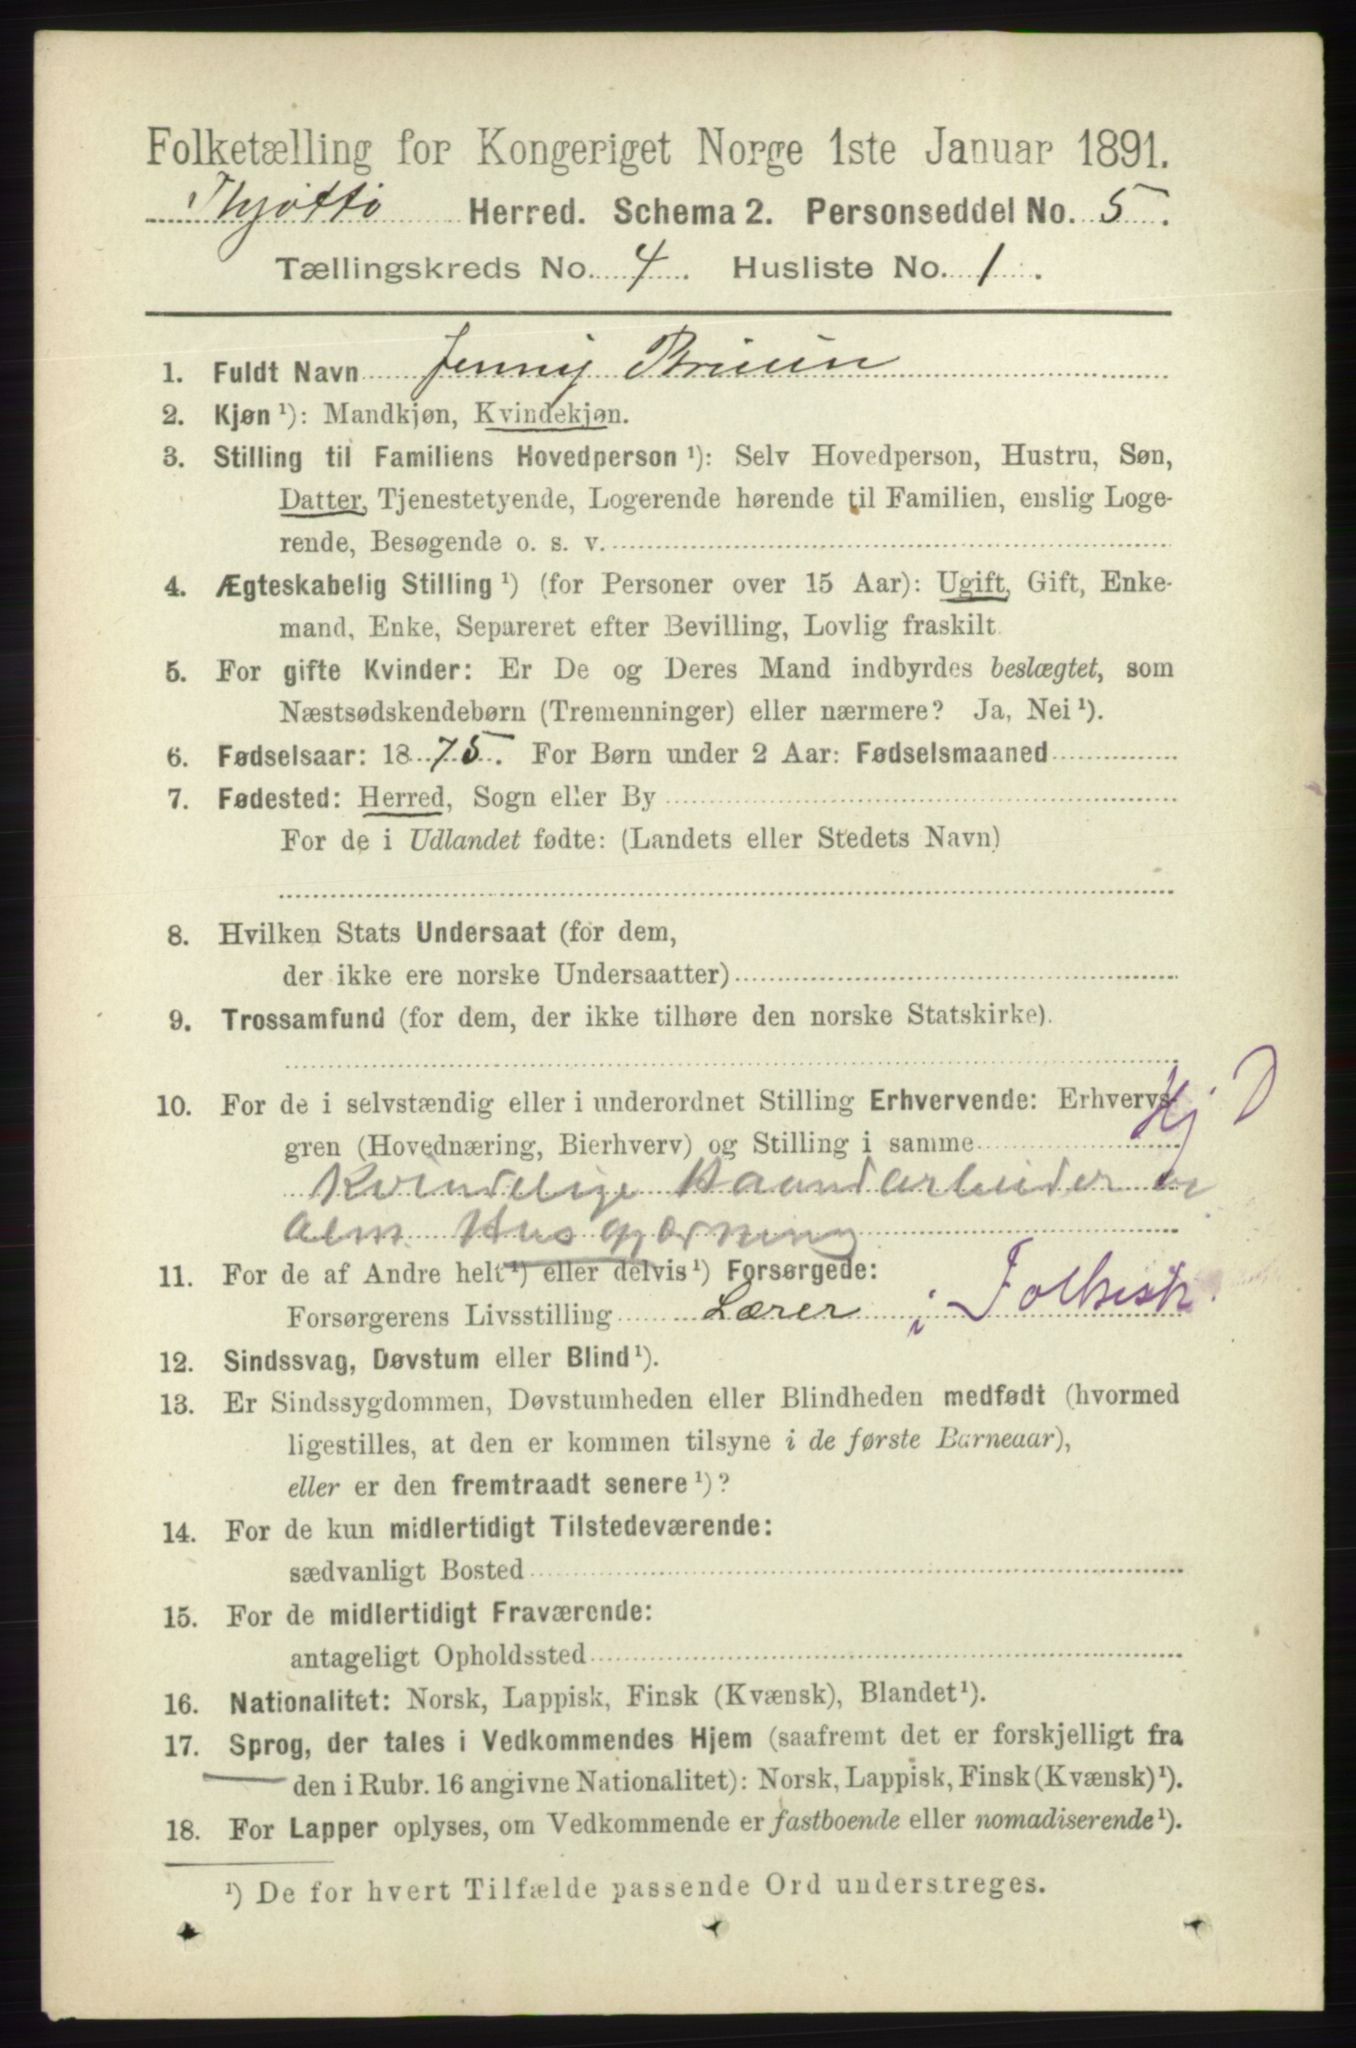 Folketælling for Kongeriget Norge 1ste Januar 1891.
Thjøttø Herred. Schema 2. Personseddel No. 5.
Tællingskreds No. 4. Husliste No. 1.
1. Fuldt Navn Jenny Bruun
2. Kjøn ¹): Mandkjøn, Kvindekjøn.
3. Stilling til Familiens Hovedperson ¹): Selv Hovedperson, Hustru, Søn,
Datter, Tjenestetyende, Logerende hørende til Familien, enslig Loge-
rende, Besøgende o. s. v.
4. Ægteskabelig Stilling ¹) (for Personer over 15 Aar): Ugift, Gift, Enke-
mand, Enke, Separeret efter Bevilling, Lovlig fraskilt.
5. For gifte Kvinder: Er De og Deres Mand indbyrdes beslægtet, som
Næstsødskendebørn (Tremenninger) eller nærmere? Ja, Nei ¹).
6. Fødselsaar: 1875. For Børn under 2 Aar: Fødselsmaaned
7. Fødested: Herred, Sogn eller By
For de i Udlandet fødte: (Landets eller Stedets Navn)
8. Hvilken Stats Undersaat (for dem,
der ikke ere norske Undersaatter)
9. Trossamfund (for dem, der ikke tilhøre den norske Statskirke).
10. For de i selvstændig eller i underordnet Stilling Erhvervende: Erhvervs-
gren (Hovednæring, Bierhverv) og Stilling i samme Hj D
Kvindelige Haandarbeider og
alm. Husgjærning
11. For de af Andre helt ¹) eller delvis ¹) Forsørgede:
Forsørgerens Livsstilling Lærer i Folkesk.
12. Sindssvag, Døvstum eller Blind ¹).
13. Er Sindssygdommen, Døvstumheden eller Blindheden medfødt (hvormed
ligestilles, at den er kommen tilsyne i de første Barneaar),
eller er den fremtraadt senere ¹)?
14. For de kun midlertidigt Tilstedeværende:
sædvanligt Bosted
15. For de midlertidigt Fraværende:
antageligt Opholdssted
16. Nationalitet: Norsk, Lappisk, Finsk (Kvænsk), Blandet ¹).
17. Sprog, der tales i Vedkommendes Hjem (saafremt det er forskjelligt fra
den i Rubr. 16 angivne Nationalitet): Norsk, Lappisk, Finsk (Kvænsk) ¹).
18. For Lapper oplyses, om Vedkommende er fastboende eller nomadiserende ¹).
¹) De for hvert Tilfælde passende Ord understreges.